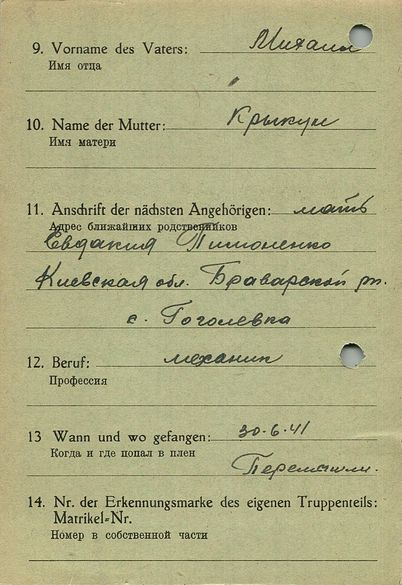 9. Vorname des Vaters: Михаил
Имя отца
10. Name der Mutter: Крыкун
Имя матери
11. Anschrift der nächsten Angehörigen: мать
Адрес ближайших родственников
Евдакия Тимоненко
Киевская обл. Браварской рн.
с. Гоголевка
12. Beruf: механик
Профессия
13 Wann und wo gefangen: 30.6.41
Когда и где попал в плен
14. Nr. der Erkennungsmarke des eigenen Truppenteils:
Matrikel-Nr.
Номер в собственной части